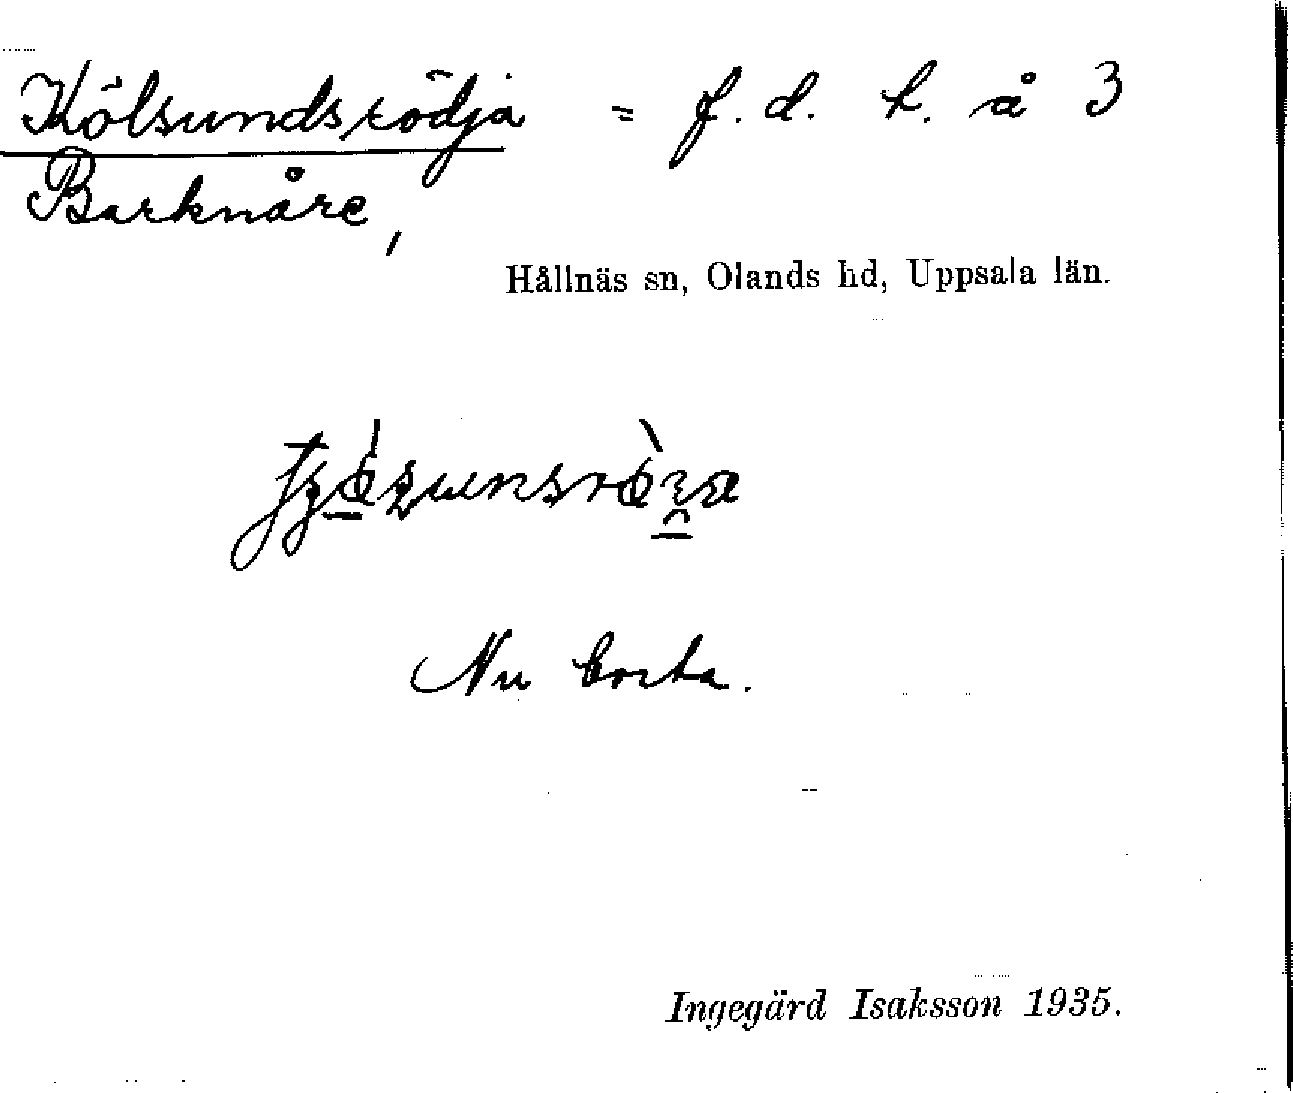 Kölsundsrödja = f. d. t. å 3
Barknåre,
Hållnäs sn, Olands hd, Uppsala län.
Nu borta.
Ingegärd Isaksson 1935.